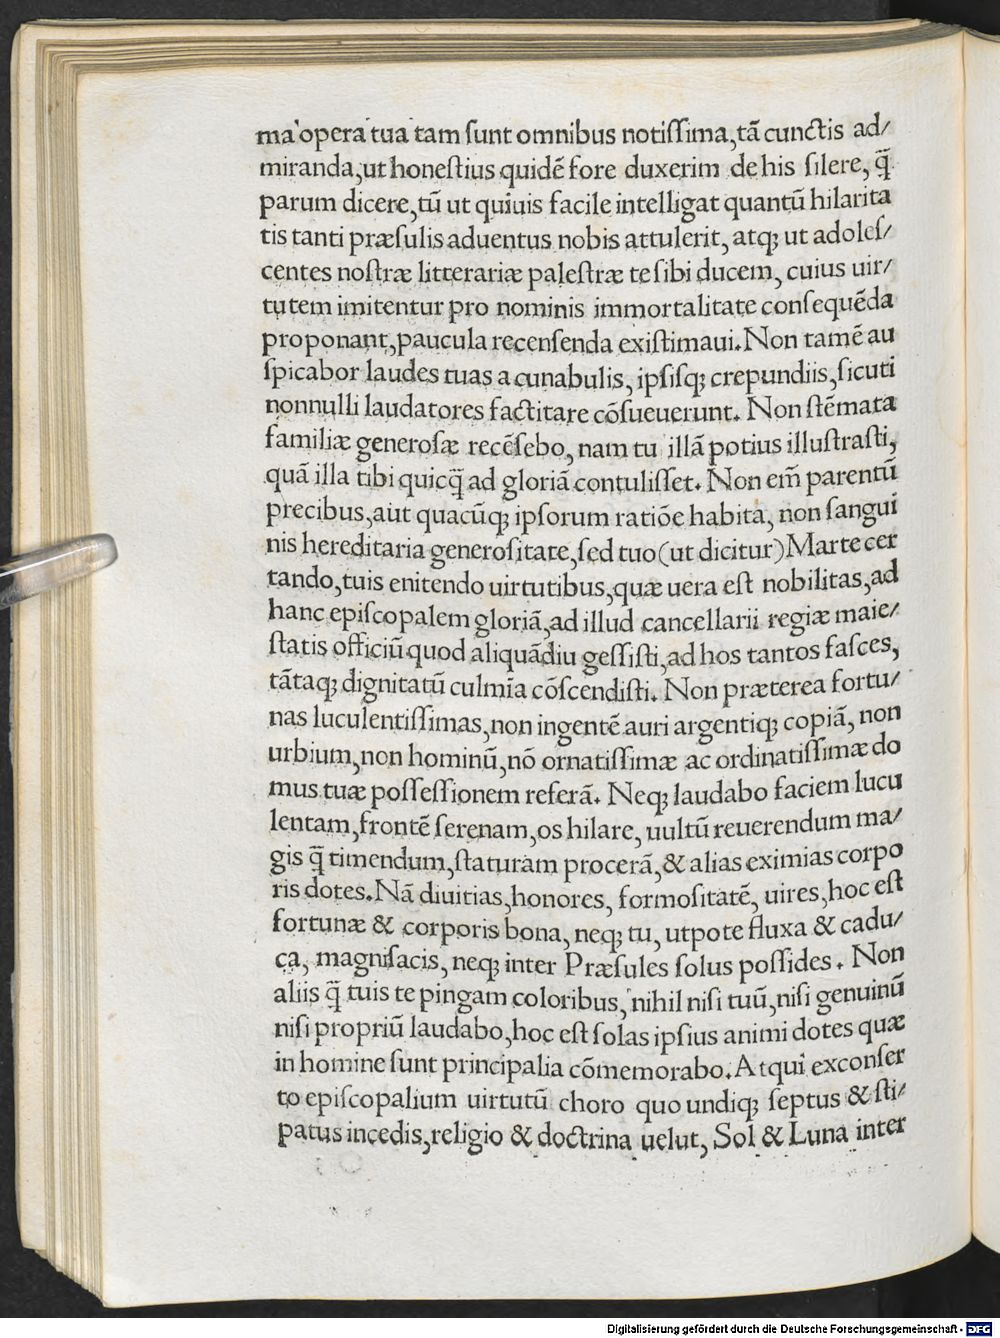 ma opera tua tam ſunt omnibus notiſſima, tā cunctis ad/
miranda, ut honeſtius quidē fore duxerim de his ſilere, q̄
parum dicere, tū ut quiuis facile intelligat quantū hilarita
tis tanti præſulis aduentus nobis attulerit, atq; ut adoleſ/
centes noſtræ litterariæ paleſtræ te ſibi ducem, cuius uir/
tutem imitentur pro nominis immortalitate conſequēda
proponant, paucula recenſenda exiſtimaui. Non tamē au
ſpicabor laudes tuas a cunabulis, ipſiſq; crepundiis, ſicuti
nonnulli laudatores factitare cōſueuerunt. Non ſtēmata
familiæ generoſæ recēſebo, nam tu illā potius illuſtraſti,
quā illa tibi quicq̄ ad gloriā contuliſſet. Non em̄ parentū
precibus, aut quacūq; ipſorum ratiōe habita, non ſangui
nis hereditaria generoſitate, ſed tuo (ut dicitur) Marte cer
tando, tuis enitendo uirtutibus, quæ uera eſt nobilitas, ad
hanc epiſcopalem gloriā, ad illud cancellarii regiæ maie/
ſtatis officiū quod aliquādiu geſſiſti, ad hos tantos faſces,
tātaq; dignitatū culmīa cōſcendiſti. Non præterea fortu/
nas luculentiſſimas, non ingentē auri argentiq; copiā, non
urbium, non hominū, nō ornatiſſimæ ac ordinatiſſimæ do
mus tuæ poſſeſſionem referā. Neq; laudabo faciem lucu
lentam, frontē ſerenam, os hilare, uultū reuerendum ma/
gis q̄ timendum, ſtaturam procerā, & alias eximias corpo
ris dotes. Nā diuitias, honores, formoſitatē, uires, hoc eſt
fortunæ & corporis bona, neq; tu, utpote fluxa & cadu/
ca, magnifacis, neq; inter Præſules ſolus poſſides. Non
aliis q̄ tuis te pingam coloribus, nihil niſi tuū, niſi genuinū
niſi propriū laudabo, hoc eſt ſolas ipſius animi dotes quæ
in homine ſunt principalia cōmemorabo. Atqui ex conſer
to epiſcopalium uirtutū choro quo undiq; ſeptus & ſti/
patus incedis, religio & doctrina uelut, Sol & Luna inter
Digitalisierung gefördert durch die Deutsche Forschungsgemeinschaft - DFG